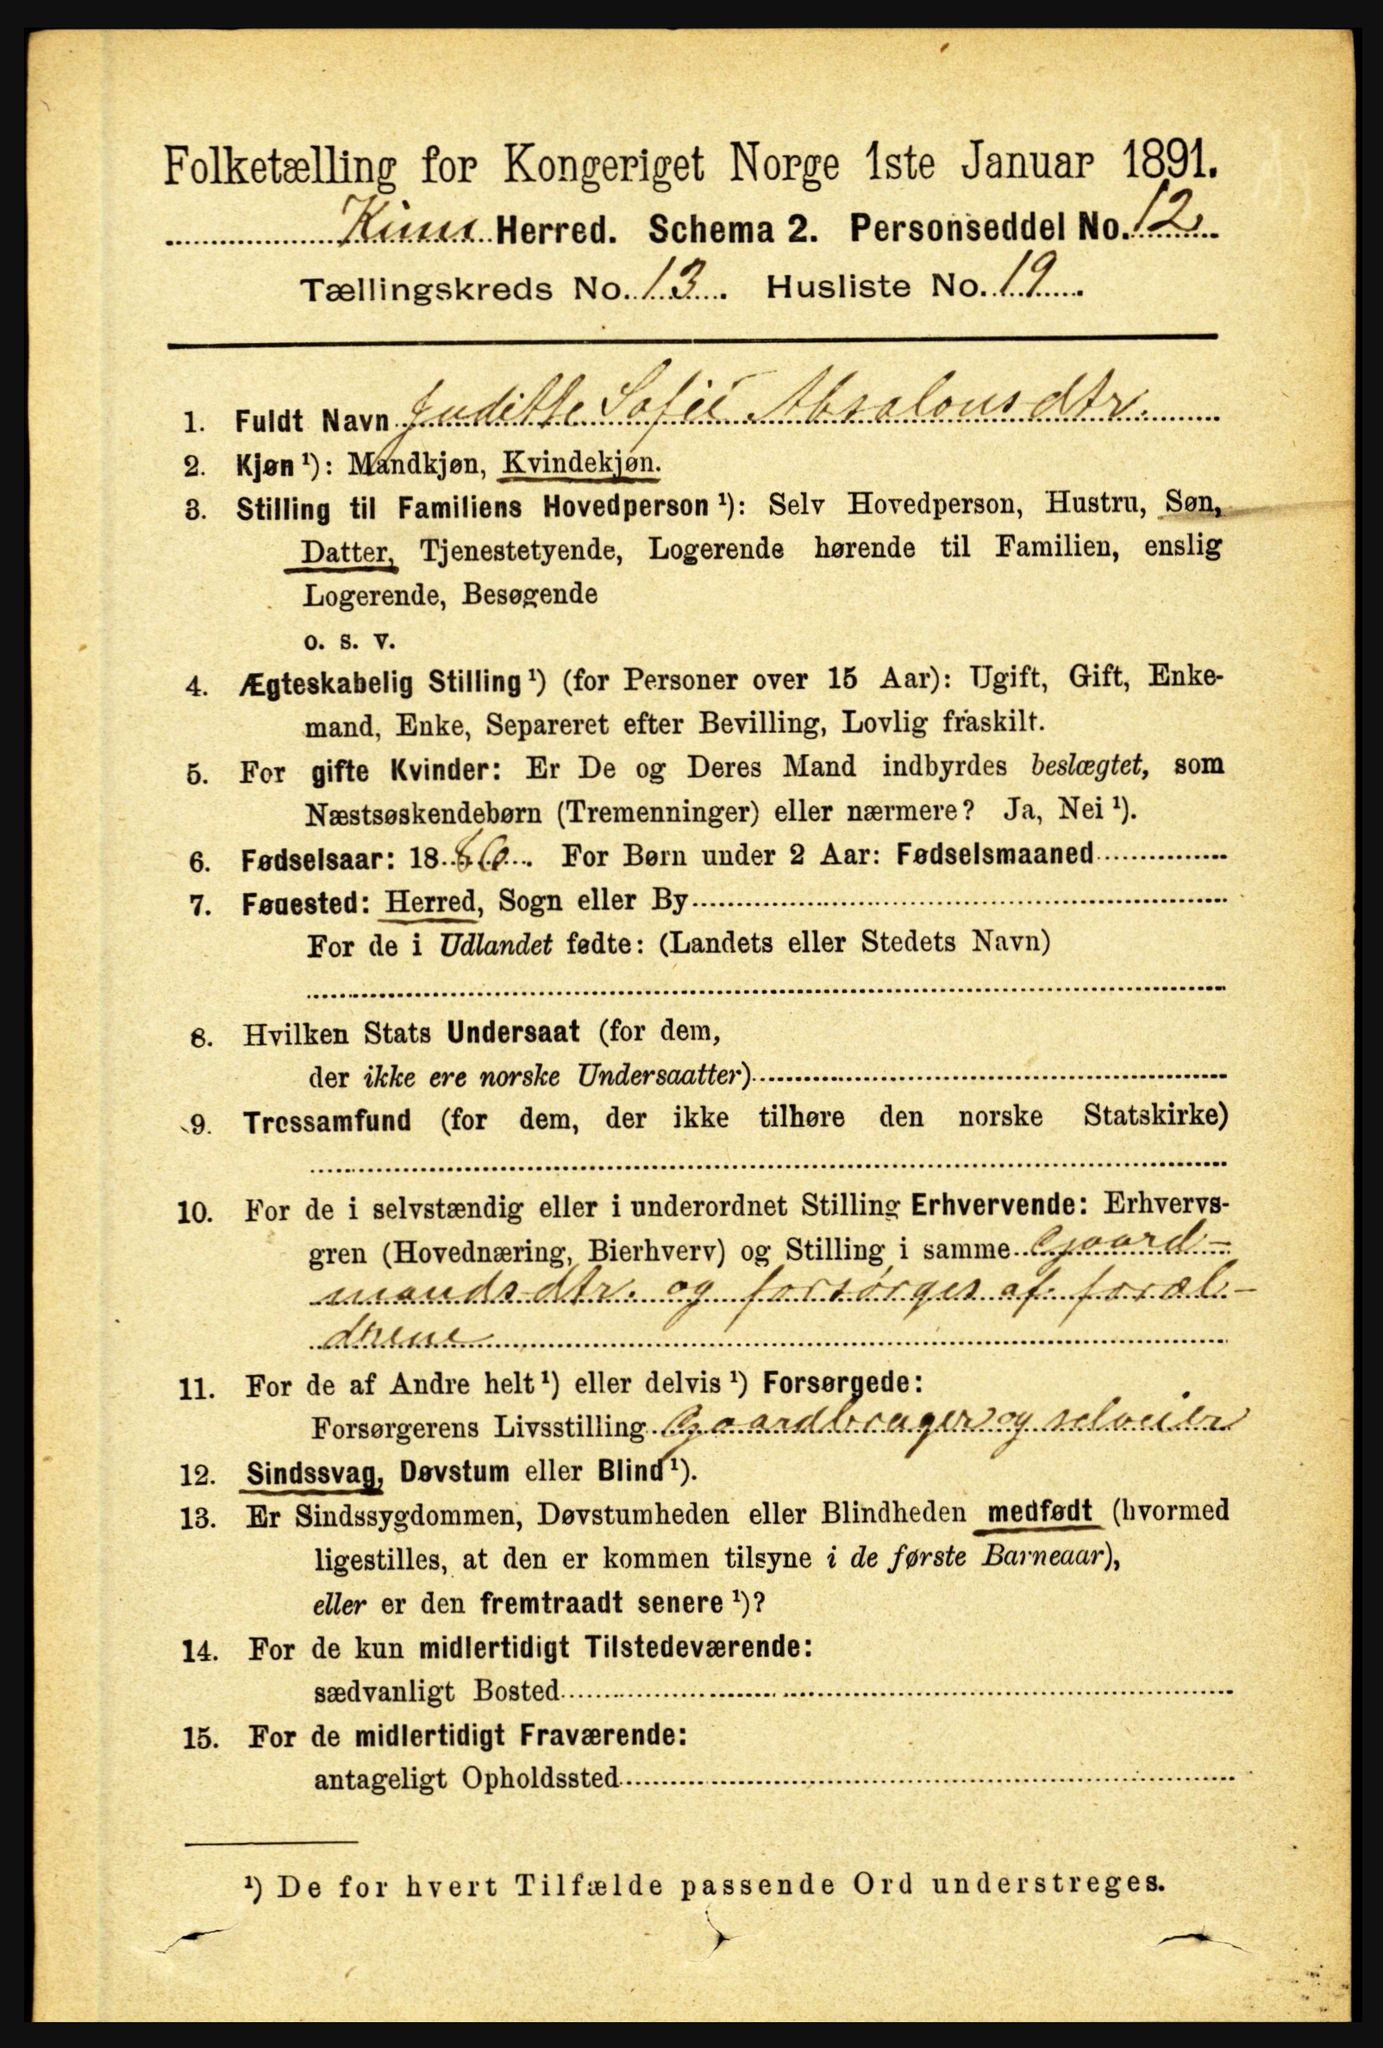 Folketælling for Kongeriget Norge 1ste Januar 1891.
Kinn Herred. Schema 2. Personseddel No. 12
Tællingskreds No. 13. Husliste No. 19
1. Fuldt Navn Juditte Sofie Absalonsdtr.
2. Kjøn ¹): Mandkjøn, Kvindekjøn.
3. Stilling til Familiens Hovedperson ¹): Selv Hovedperson, Hustru, Søn,
Datter, Tjenestetyende, Logerende hørende til Familien, enslig
Logerende, Besøgende
o. s. v.
4. Ægteskabelig Stilling ¹) (for Personer over 15 Aar): Ugift, Gift, Enke-
mand, Enke, Separeret efter Bevilling, Lovlig fraskilt.
5. For gifte Kvinder: Er De og Deres Mand indbyrdes beslægtet, som
Næstsøskendebørn (Tremenninger) eller nærmere? Ja, Nei ¹).
6. Fødselsaar: 18 . For Børn under 2 Aar: Fødselsmaaned
7. Fødested: Herred, Sogn eller By
For de i Udlandet fødte: (Landets eller Stedets Navn)
8. Hvilken Stats Undersaat (for dem,
der ikke ere norske Undersaatter)
9. Trossamfund (for dem, der ikke tilhøre den norske Statskirke)
10. For de i selvstændig eller i underordnet Stilling Erhvervende: Erhvervs-
gren (Hovednæring, Bierhverv) og Stilling i samme Gaard-
mandsdtr. og forsørges af foræl-
drene
11. For de af Andre helt ¹) eller delvis ¹) Forsørgede:
Forsørgerens Livsstilling Gaardbruger og selveier
12. Sindssvag, Døvstum eller Blind ¹).
13. Er Sindssygdommen, Døvstumheden eller Blindheden medfødt (hvormed
ligestilles, at den er kommen tilsyne i de første Barneaar),
eller er den fremtraadt senere ¹)?
14. For de kun midlertidigt Tilstedeværende:
sædvanligt Bosted
15. For de midlertidigt Fraværende:
antageligt Opholdssted
¹) De for hvert Tilfælde passende Ord understreges.